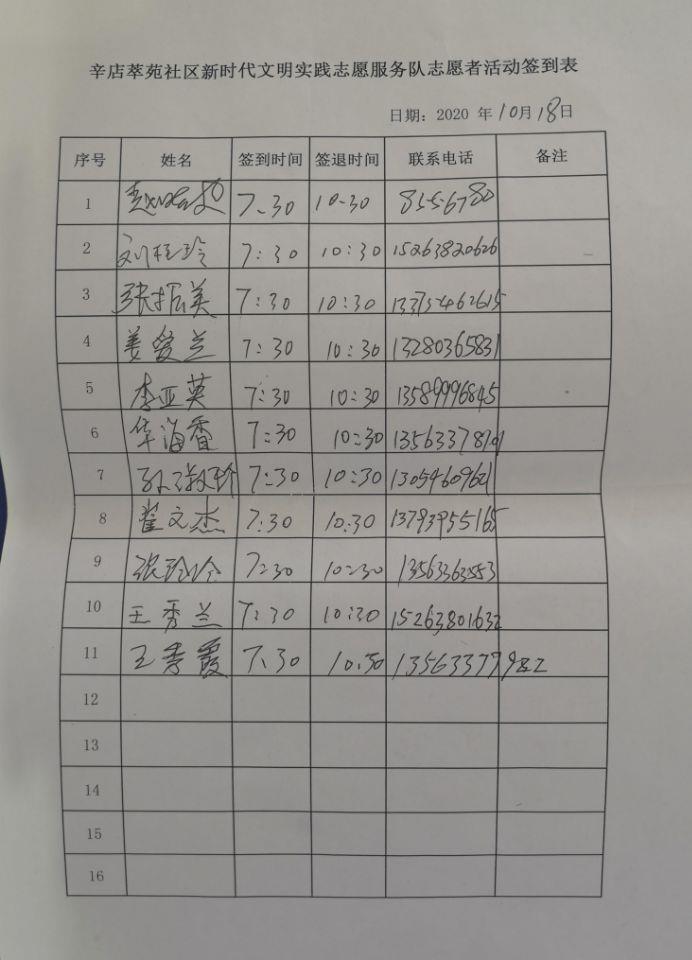 辛店萃苑社区新时代文明实践志愿服务队志愿者活动签到表
日期：2020 年10月18日
序号 姓名 签到时间 签退时间 联系电话 备注
1 7.30 10-30 8556780
2 刘桂玲 7:30 10:30 15263820626
3 张振美 7:30 10:30 13375462615
4 姜爱兰 7:30 10:30 13280365831
5 李亚英 7:30 10:30 13589996845
6 华海香 7:30 10:30
7 孙淑珍 7:30 10:30 13054609621
8 崔文杰 7:30 10:30 13793955165
9 张玲玲 7:30 10:30 13563363553
10 王秀兰 7:30 10:30 15263801632
11 王秀霞 7.30 10.30 13563377982
12
13
14
15
16